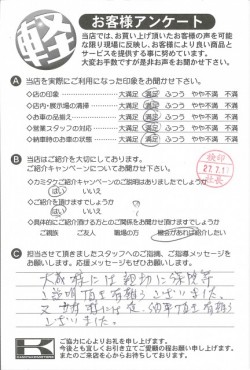 軽
お客様アンケート
当店では、お買い上げ頂いたお客様の声を可能
な限り現場に反映し、お客様により良い商品と
サービスを提供する事に努めています。
大変お手数ですが是非お声をお聞かせ下さい。
A 当店を実際にご利用になった印象をお聞かせ下さい。
◇店の印象 大満足 満足 ふつう やや不満 不満
◇店内・展示場の清掃 大満足 満足 ふつう やや不満 不満
◇お車の品揃え 大満足 満足 ふつう やや不満 不満
◇営業スタッフの対応 大満足 満足 ふつう やや不満 不満
◇納車時のお車の状態 大満足 満足 ふつう やや不満 不満
B 当店はご紹介を大切にしております。
ご紹介キャンペーンについてお聞かせ下さい
◇カミタケご紹介キャンペーンのご説明はありましたでしょうか
はい いいえ
◇ご紹介を頂けますでしょうか
はい いいえ
◇具体的にご紹介頂ける方とのご関係をお聞かせ頂けますでしょうか
ご親族 ご友人 職場の方 機会があれば紹介したい
C 担当させて頂きましたスタッフへのご指摘、ご指導メッセージを
お願いします。応援メッセージもぜひお願いします。
様には親切に
説明頂き有難う ございました。
ございました。
ご協力に心よりお礼を申し上げます。
今後とも宜しくお引き立てご愛顧の程お願い申し上げます。
またのご来店を心からお待ちしております。